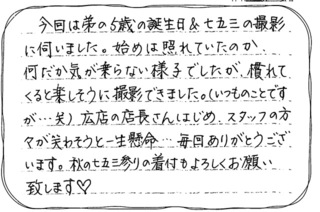 今回は弟の5歳の誕生日&七五三の撮影
に伺いました。始めは照れていたのか、
何だか気が乗らない様子でしたが、慣れて
くると楽しそうに撮影できました。(いつものことです
が…笑) 広店の店長さんはじめ、スタッフの方
々が笑わそうと一生懸命… 毎回ありがとうござ
います。秋の七五三参りの着付もよろしくお願い
致します♡